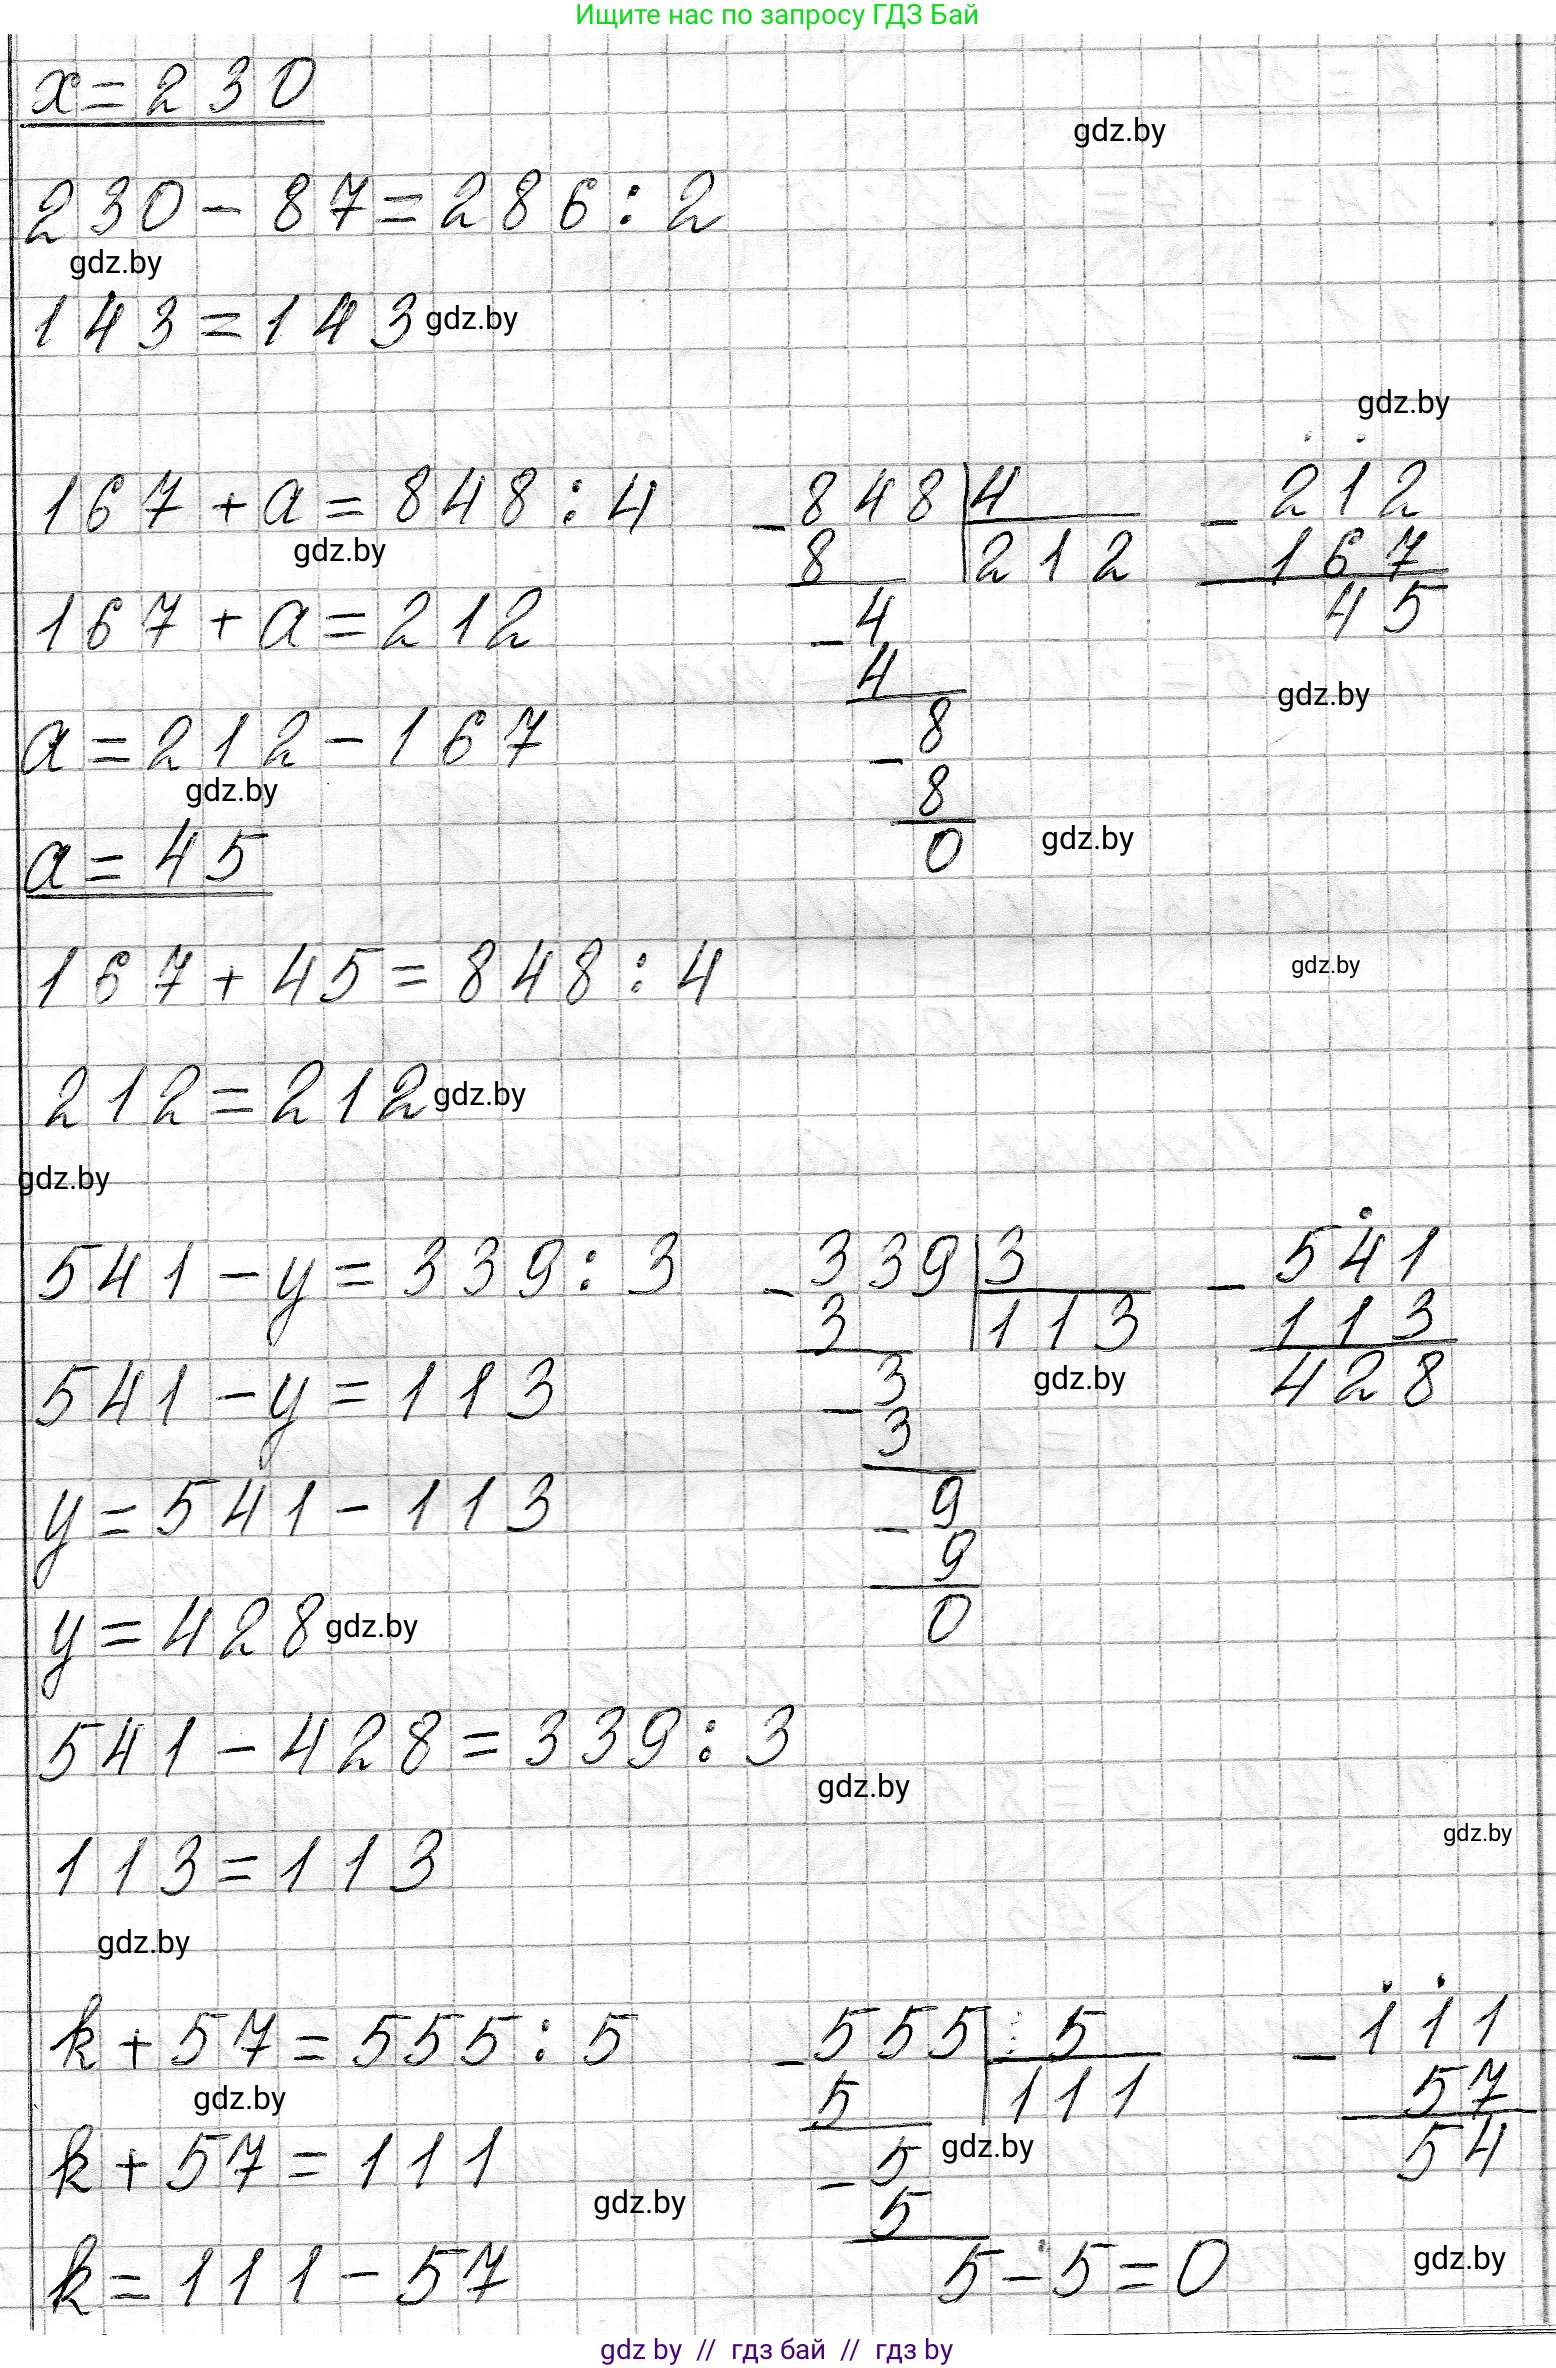 Ищите нас по запросу ГДЗ Бай
x = 230
gdz.by
230 - 87 = 286 : 2
gdz.by
143 = 143 gdz.by
gdz.by
167 + a = 848 : 4
- 848 | 4
8
212
- 212
167
45
gdz.by
167 + a = 212
- 4
4
gdz.by
a = 212 - 167
- 8
8
0
gdz.by
gdz.by
a = 45
167 + 45 = 848 : 4
gdz.by
212 = 212 gdz.by
gdz.by
541 - y = 339 : 3
- 339 | 3
3
113
- 541
113
428
gdz.by
541 - y = 113
- 3
3
y = 541 - 113
- 9
9
0
y = 428 gdz.by
541 - 428 = 339 : 3
gdz.by
gdz.by
113 = 113
gdz.by
k + 57 = 555 : 5
- 555 | 5
5
111
- 111
57
54
gdz.by
gdz.by
k + 57 = 111
- 5
5
gdz.by
k = 111 - 57
5 - 5 = 0
gdz.by
gdz by // гдз бай // гдз by